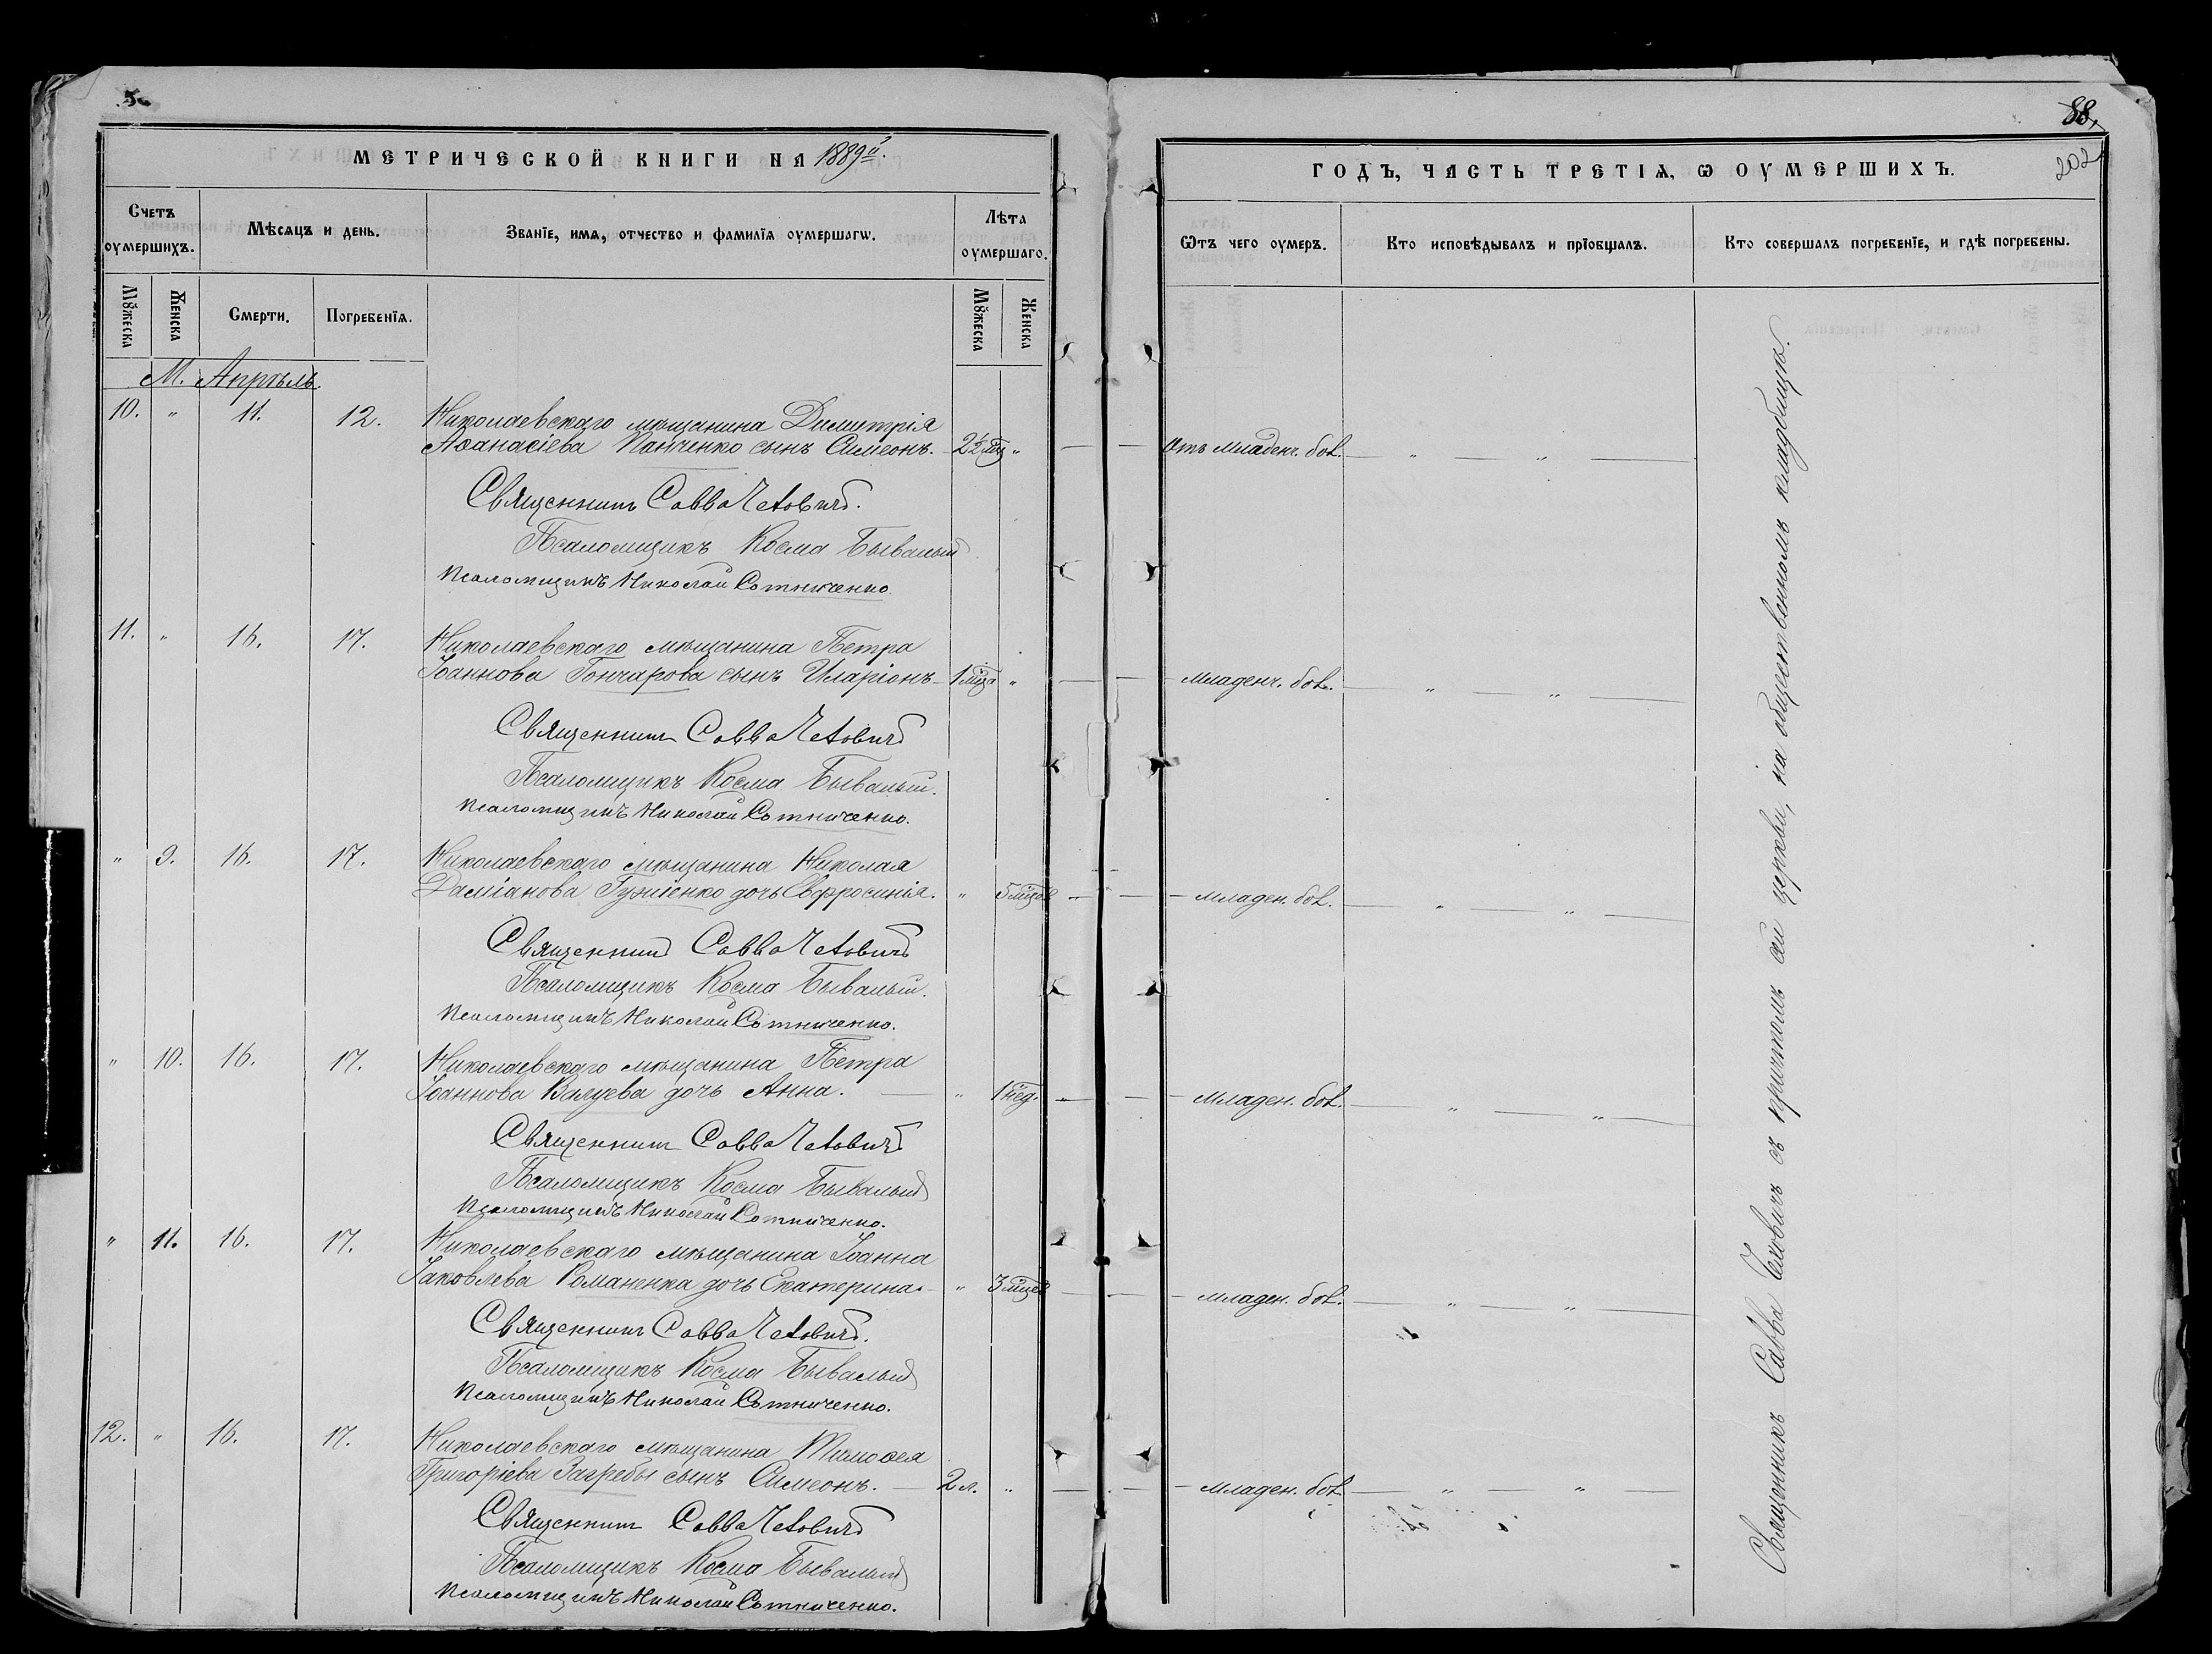 5
МЕТРИЧЕСКОЙ КНИГИ НА 1889й.
Счетъ оумершихъ.
Мѣсяцъ и день.
Званіе, имя, отчество и фамилія оумершагѡ.
Лѣта оумершаго.
Мꙋжеска
Женска
Смерти.
Погребенія.
Мꙋжеска
Женска
М. Апрѣль.
10. " 11. 12. Николаевскаго мѣщанина Димитрія
Аѳанасіева Панченко сынъ Симеонъ. 2½ мц "
Священникъ Савва Чеховичъ.
Псаломщикъ Косма Бывалый
Псаломщикъ Николай Сотниченко
11. " 16. 17. Николаевскаго мѣщанина Петра
Іоаннова Гончарова сынъ Иларіонъ 1 мца "
Священникъ Савва Чеховичъ
Псаломщикъ Косма Бывалый.
Псаломщикъ Николай Сотниченко.
" 9. 16. 17. Николаевскаго мѣщанина Николая
Даміанова дочь Евфросинія. " 5 мцев
Священникъ Савва Чеховичъ
Псаломщикъ Косма Бывалый.
Псаломщикъ Николай Сотниченко.
" 10. 16. 17. Николаевскаго мѣщанина Петра
Іоаннова Валуева дочь Анна. " 1 нед.
Священникъ Савва Чеховичъ
Псаломщикъ Косма Бывалый
Псаломщикъ Николай Сотниченко.
" 11. 16. 17. Николаевскаго мѣщанина Іоанна
Іаковлева Романенка дочь Екатерина " 3 мцев
Священникъ Савва Чеховичъ.
Псаломщикъ Косма Бывалый
Псаломщикъ Николай Сотниченко.
12. " 16. 17. Николаевскаго мѣщанина Тимоѳея
Григоріева Загребы сынъ Симеонъ. 2 л. "
Священникъ Савва Чеховичъ
Псаломщикъ Косма Бывалый
Псаломщикъ Николай Сотниченко.
88.
202
ГОДЪ, ЧАСТЬ ТРЕТІѦ, Ѡ ОУМЕРШИХЪ.
Ѿтъ чего оумеръ.
Кто исповѣдывалъ и пріобщалъ.
Кто совершалъ погребеніе, и гдѣ погребены.
Отъ младенч. бол. " "
Младенч. бол. " "
Младен. бол. " "
Младен. бол. " "
Младен. бол. " "
Младен. бол. " "
Священникъ Савва Чеховичъ съ причтомъ сей церкви, на общественномъ кладбищѣ.